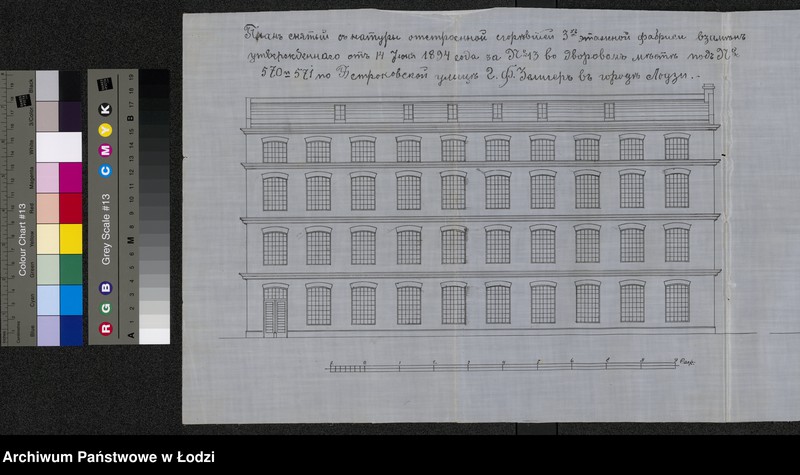 Планъ снятый съ натуры отстроенной сгорѣвшей 3хъ этажной фабрики взамѣнъ
утвержденнаго отъ 14 Июня 1894 года за №13 во дворовомъ мѣстѣ подъ №
570 и 571 по Петроковской улицѣ Г. Ф. въ городѣ Лодзи.
Colour Chart #13
Blue
Cyan
Green
Yellow
Red
Magenta
White
3/Color
Black
Grey Scale #13
R G B
C M Y K
A 1 2 3 4 5 6 M 8 9 10 11 12 13 14 15 B 17 18 19
Archiwum Państwowe w Łodzi